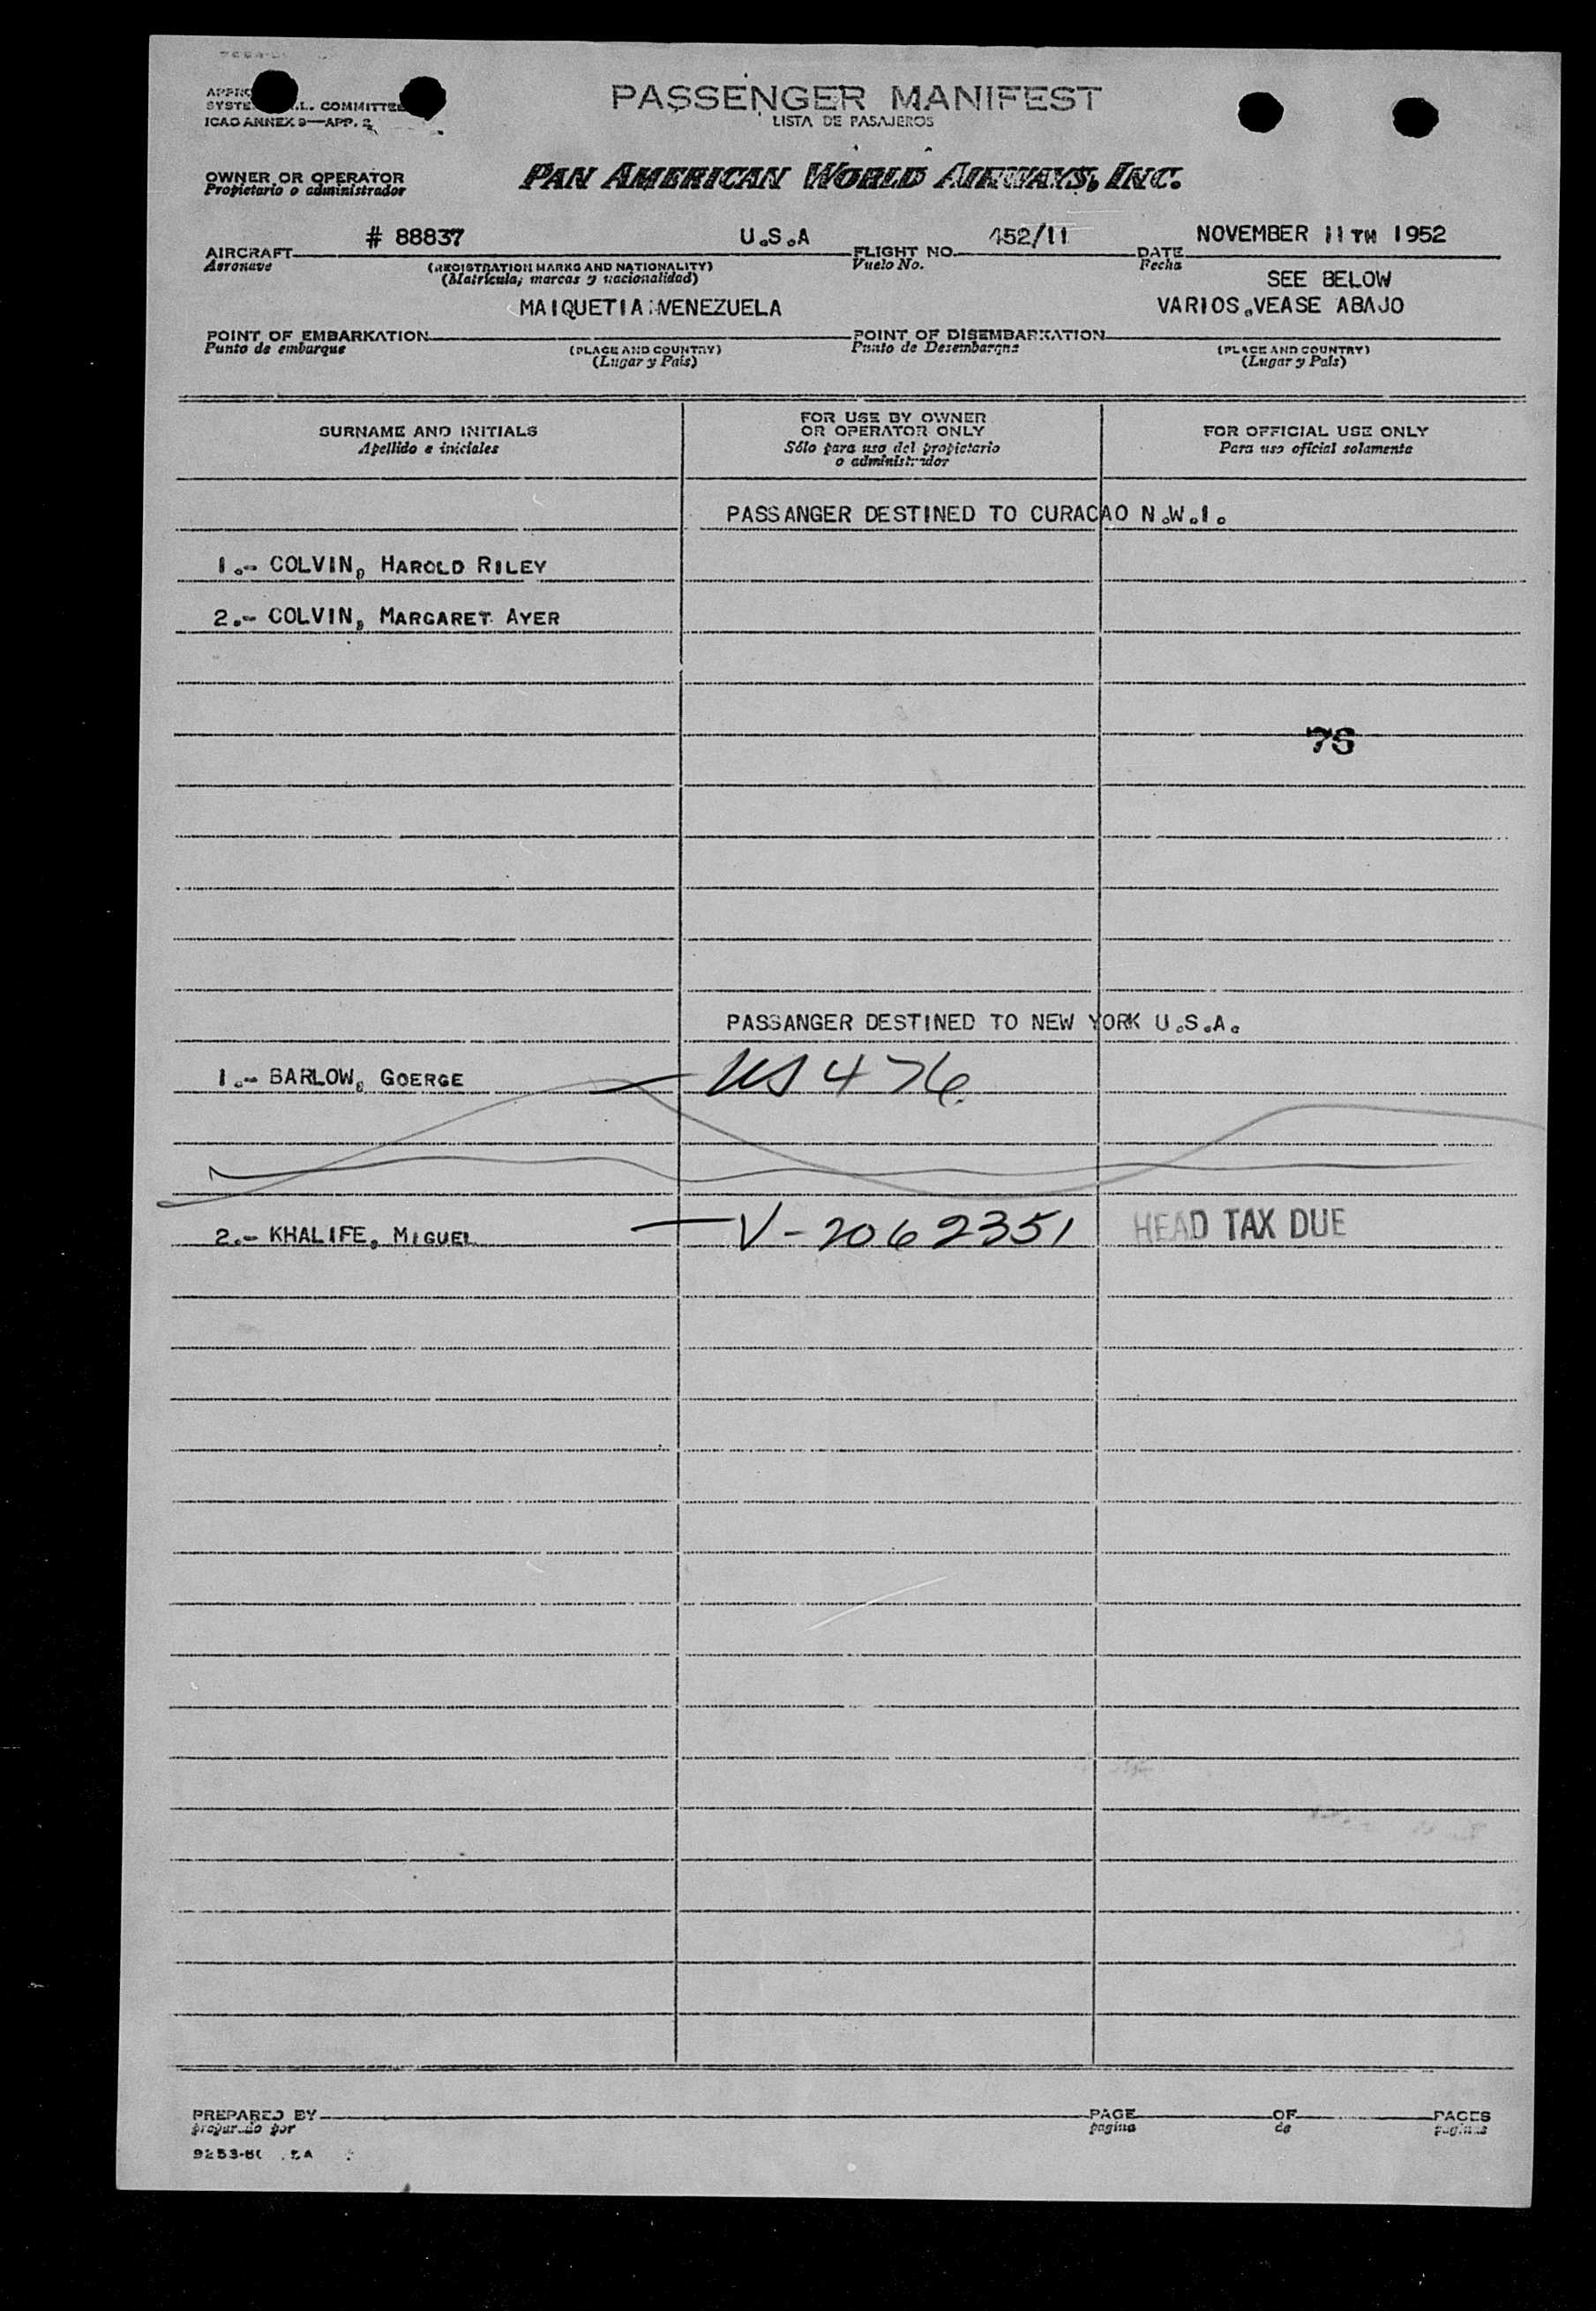 PASSENGER MANIFEST
LISTA DE PASAJEROS
COMMITTEE
ICAO ANNEX 9—APP. 2
OWNER OR OPERATOR
Propietario o administrador
PAN AMERICAN WORLD AIRWAYS, INC.
AIRCRAFT # 88837 U.S.A FLIGHT NO. 452/11 DATE NOVEMBER 11TH 1952
Aeronave (REGISTRATION MARKS AND NATIONALITY) Vuelo No. Fecha
(Matrícula, marcas y nacionalidad) SEE BELOW
MAIQUETIA VENEZUELA VARIOS.VEASE ABAJO
POINT OF EMBARKATION POINT OF DISEMBARKATION
Punto de embarque (PLACE AND COUNTRY) Punto de Desembarque (PLACE AND COUNTRY)
(Lugar y País) (Lugar y País)
SURNAME AND INITIALS
Apellido e iniciales
FOR USE BY OWNER
OR OPERATOR ONLY
Sólo para uso del propietario
o administrador
FOR OFFICIAL USE ONLY
Para uso oficial solamente
PASSANGER DESTINED TO CURACAO N.W.I.
1.- COLVIN, HAROLD RILEY
2.- COLVIN, MARGARET AYER
PASSANGER DESTINED TO NEW YORK U.S.A.
1.- BARLOW, GOERGE US 476
2.- KHALIFE, MIGUEL — V-2062351 HEAD TAX DUE
PREPARED BY PAGE OF PAGES
preparado por pagina de paginas